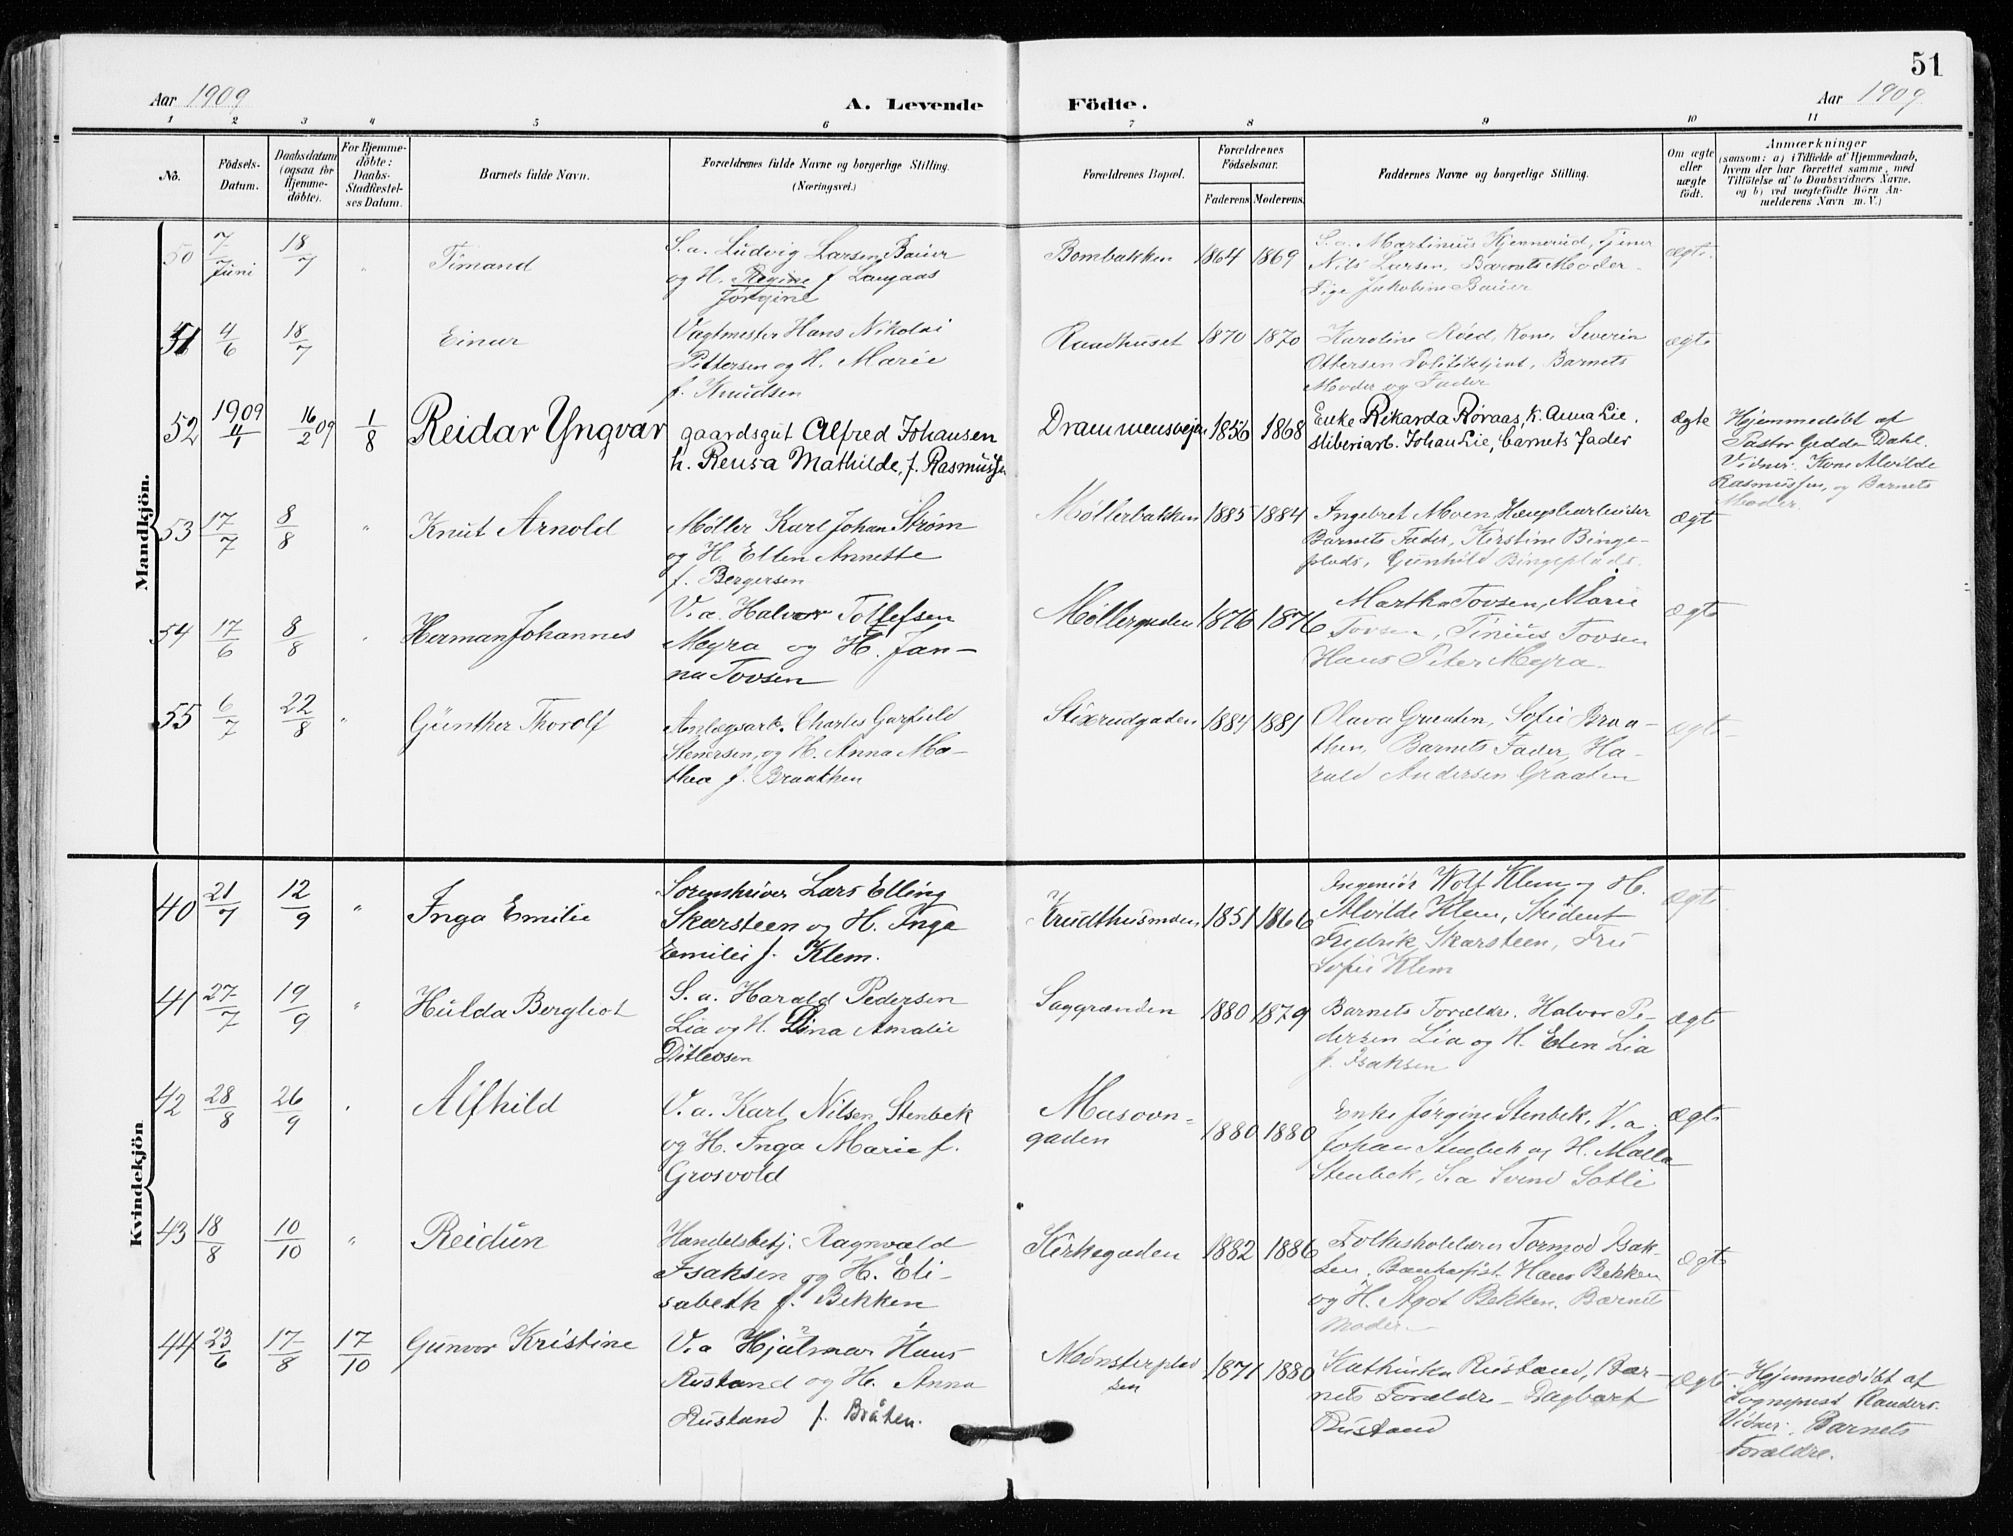 51
Aar 1909
A. Levende
Födte.
Aar 1909
1 2 3 4 5 6 7 8 9 10 11
No.
Födsels-
Datum.
Daabsdatum
(ogsaa for
Hjemme-
döbte).
For Hjemme-
döbte:
Daabs-
Stadfæstel-
ses Datum.
Barnets fulde Navn.
Forældrenes fulde Navne og borgerlige Stilling.
(Næringsvei.)
Forældrenes Bopæl.
Forældrenes
Födselsaar.
Faderens. Moderens.
Faddernes Navne og borgerlige Stilling.
Om ægte
eller
uægte
födt.
Anmærkninger
(saasom: a) i Tilfælde af Hjemmedaab,
hvem der har forrettet samme, med
Tilföielse af to Daabsvidners Navne,
og b) ved uegtefödte Börn An-
melderens Navn m. V.)
Mandkjön.
50 7/Juni 18/7 " Timand
S. a. Ludvig Larsen Bauer
og H. Regine f. Langaas
Jørgine
Bombakken 1864 1869
S. a. Martinius Hjennerud, Tjener
Nils Larsen, Barnets Moder
Pige Jakobine Bauer
ægte.
51 4/6 18/7 Einar
Vagtmester Hans Nikolai
Pettersen og H. Marie
f. Knudsen
Raadhuset 1870 1870
Karoline Røed, Kone, Severin
Ottersen Politibetjent, Barnets
Moder og Fader
ægte
52 1909 11/1 16/2 09 1/8 Reidar Yngvar
gaardsgut Alfred Johansen
h. Reusa Mathilde, f. Rasmussen
Drammensvejen 1856 1868
Enke Rikarda Røraas, K. Anna Lie,
Stiberiarb. Johan Lie, barnets Fader
ægte
Hjemmedøbt af
Pastor Gedde Dahl.
Vidner: Kone Alvilde
Rasmussen, og Barnets
Moder.
53 17/7 8/8 " Knut Arnold
Møller Karl Johan Strøm
og H. Ellen Annette
f. Bergersen
Møllerbakken 1885 1884
Ingebret Moen,
Barnets Fader, Kirstine Binge-
plads, Gunhild Bingeplads.
ægt
54 17/6 8/8 " Herman Johannes
V. a. Halvor Tollefsen
Meyra og H. Jan-
na Tovsen
Møllergaden 1876 1876
Martha Tovsen, Marie
Tovsen, Tinius Tovsen
Hans Peter Mejra.
ægte
55 6/7 22/8 " Günther Thorolf
Anlægsarb. Charles Garfield
Stenersen, og H. Anna Ma-
thea f. Braathen
Stixrudgaden 1884 1881
Olava Graaten, Sofie Braa-
then, Barnets Fader, Ha-
rald Andersen Graaten
ægte
Kvindekjön
40 21/7 12/9 " Inga Emilie
Sorenskriver Lars Elling
Skarsteen og H. Inga
Emilie f. Klem.
Krudthusmoen 1851 1866
Ingeniør Wolf Klem og H.
Alvilde Klem, Student
Fredrik Skarsteen, Fru
Sofie Klem
ægte
41 27/7 19/9 " Hulda Bergliot
S. a. Harald Pedersen
Lia og H. Lina Amalie
Ditlevsen
Saggrænden 1880 1879
Barnets Forældre. Halvor Pe-
dersen Lia og H. Elen Lia
f. Isaksen
ægte
42 28/8 26/9 " Alfhild
V. a. Karl Nilsen Stenbek
og H. Inga Marie f.
Grosvold
Masovn-
gaden 1880 1880
Enke Jørgine Stenbek, V. a.
Johan Stenbek og H. Malla
Stenbek, S. a. Svend Sotli
ægte
43 18/8 10/10 " Reidun
Handelsbetj. Ragnvald
Isaksen og H. Eli-
sabeth f. Bekken
Kirkegaden 1882 1886
Folkeskolelærer Tormod Isak-
sen. Hans Bekken
og H. Agot Bekken. Barnets
Moder
ægte
44 23/6 17/8 17/10 Gunvor Kristine
V. a Hjalmar Hans
Rustand og H. Anna
Rustand f. Bråten.
Mønsterplad
sen 1871 1880
Kathinka Rustand, Bar-
nets Forældre – Dagbart
Rustand
ægte
Hjemmedøbt af
Sogneprest Randers.
Vidner: Barnets
Forældre.